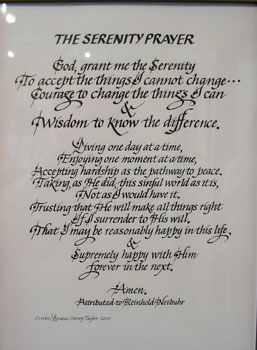 THE SERENITY PRAYER
God, grant me the Serenity
To accept the things I cannot change...
Courage to change the things I can
&
Wisdom to know the difference.
Living one day at a time,
Enjoying one moment at a time,
Accepting hardship as the pathway to peace.
Taking, as He did, this sinful world as it is,
Not as I would have it.
Trusting that He will make all things right
If I surrender to His will.
That I may be reasonably happy in this life,
&
Supremely happy with Him
forever in the next.
Amen.
Attributed to Reinhold Neibuhr